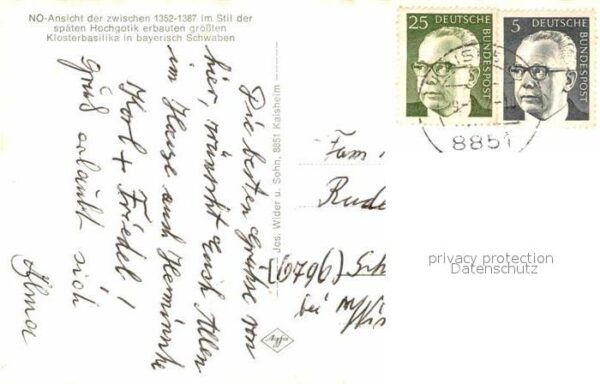 NO-Ansicht der zwischen 1352-1387 im Stil der
späten Hochgotik erbauten größten
Klosterbasilika in bayerisch Schwaben
Die besten Grüße von
hier, wünscht Euch Allen
im Hause auch Herminne
Karl + Friedel!
Gruß erlaubt sich
Alma
Jos. Wider u. Sohn, 8851 Kaisheim
Agfa
25
DEUTSCHE
BUNDESPOST
5
DEUTSCHE
BUNDESPOST
8851
Fam.
Rude
(6796) Sch
bei
privacy protection
Datenschutz